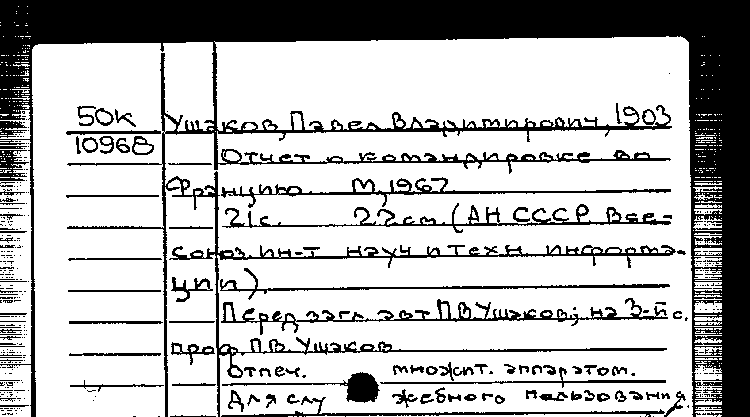 50к Ушаков, Павел Владимирович, 1903
10968 Отчет о командировке во
Францию. М, 1967
21с. 22см. (АН СССР. Все-
союз. ин-т науч и техн информа-
ции).
Перед загл. авт П.В. Ушаков; на 3-й с.
проф. П.В. Ушаков
Отпеч. множит. аппаратом.
Для служебного пользования.